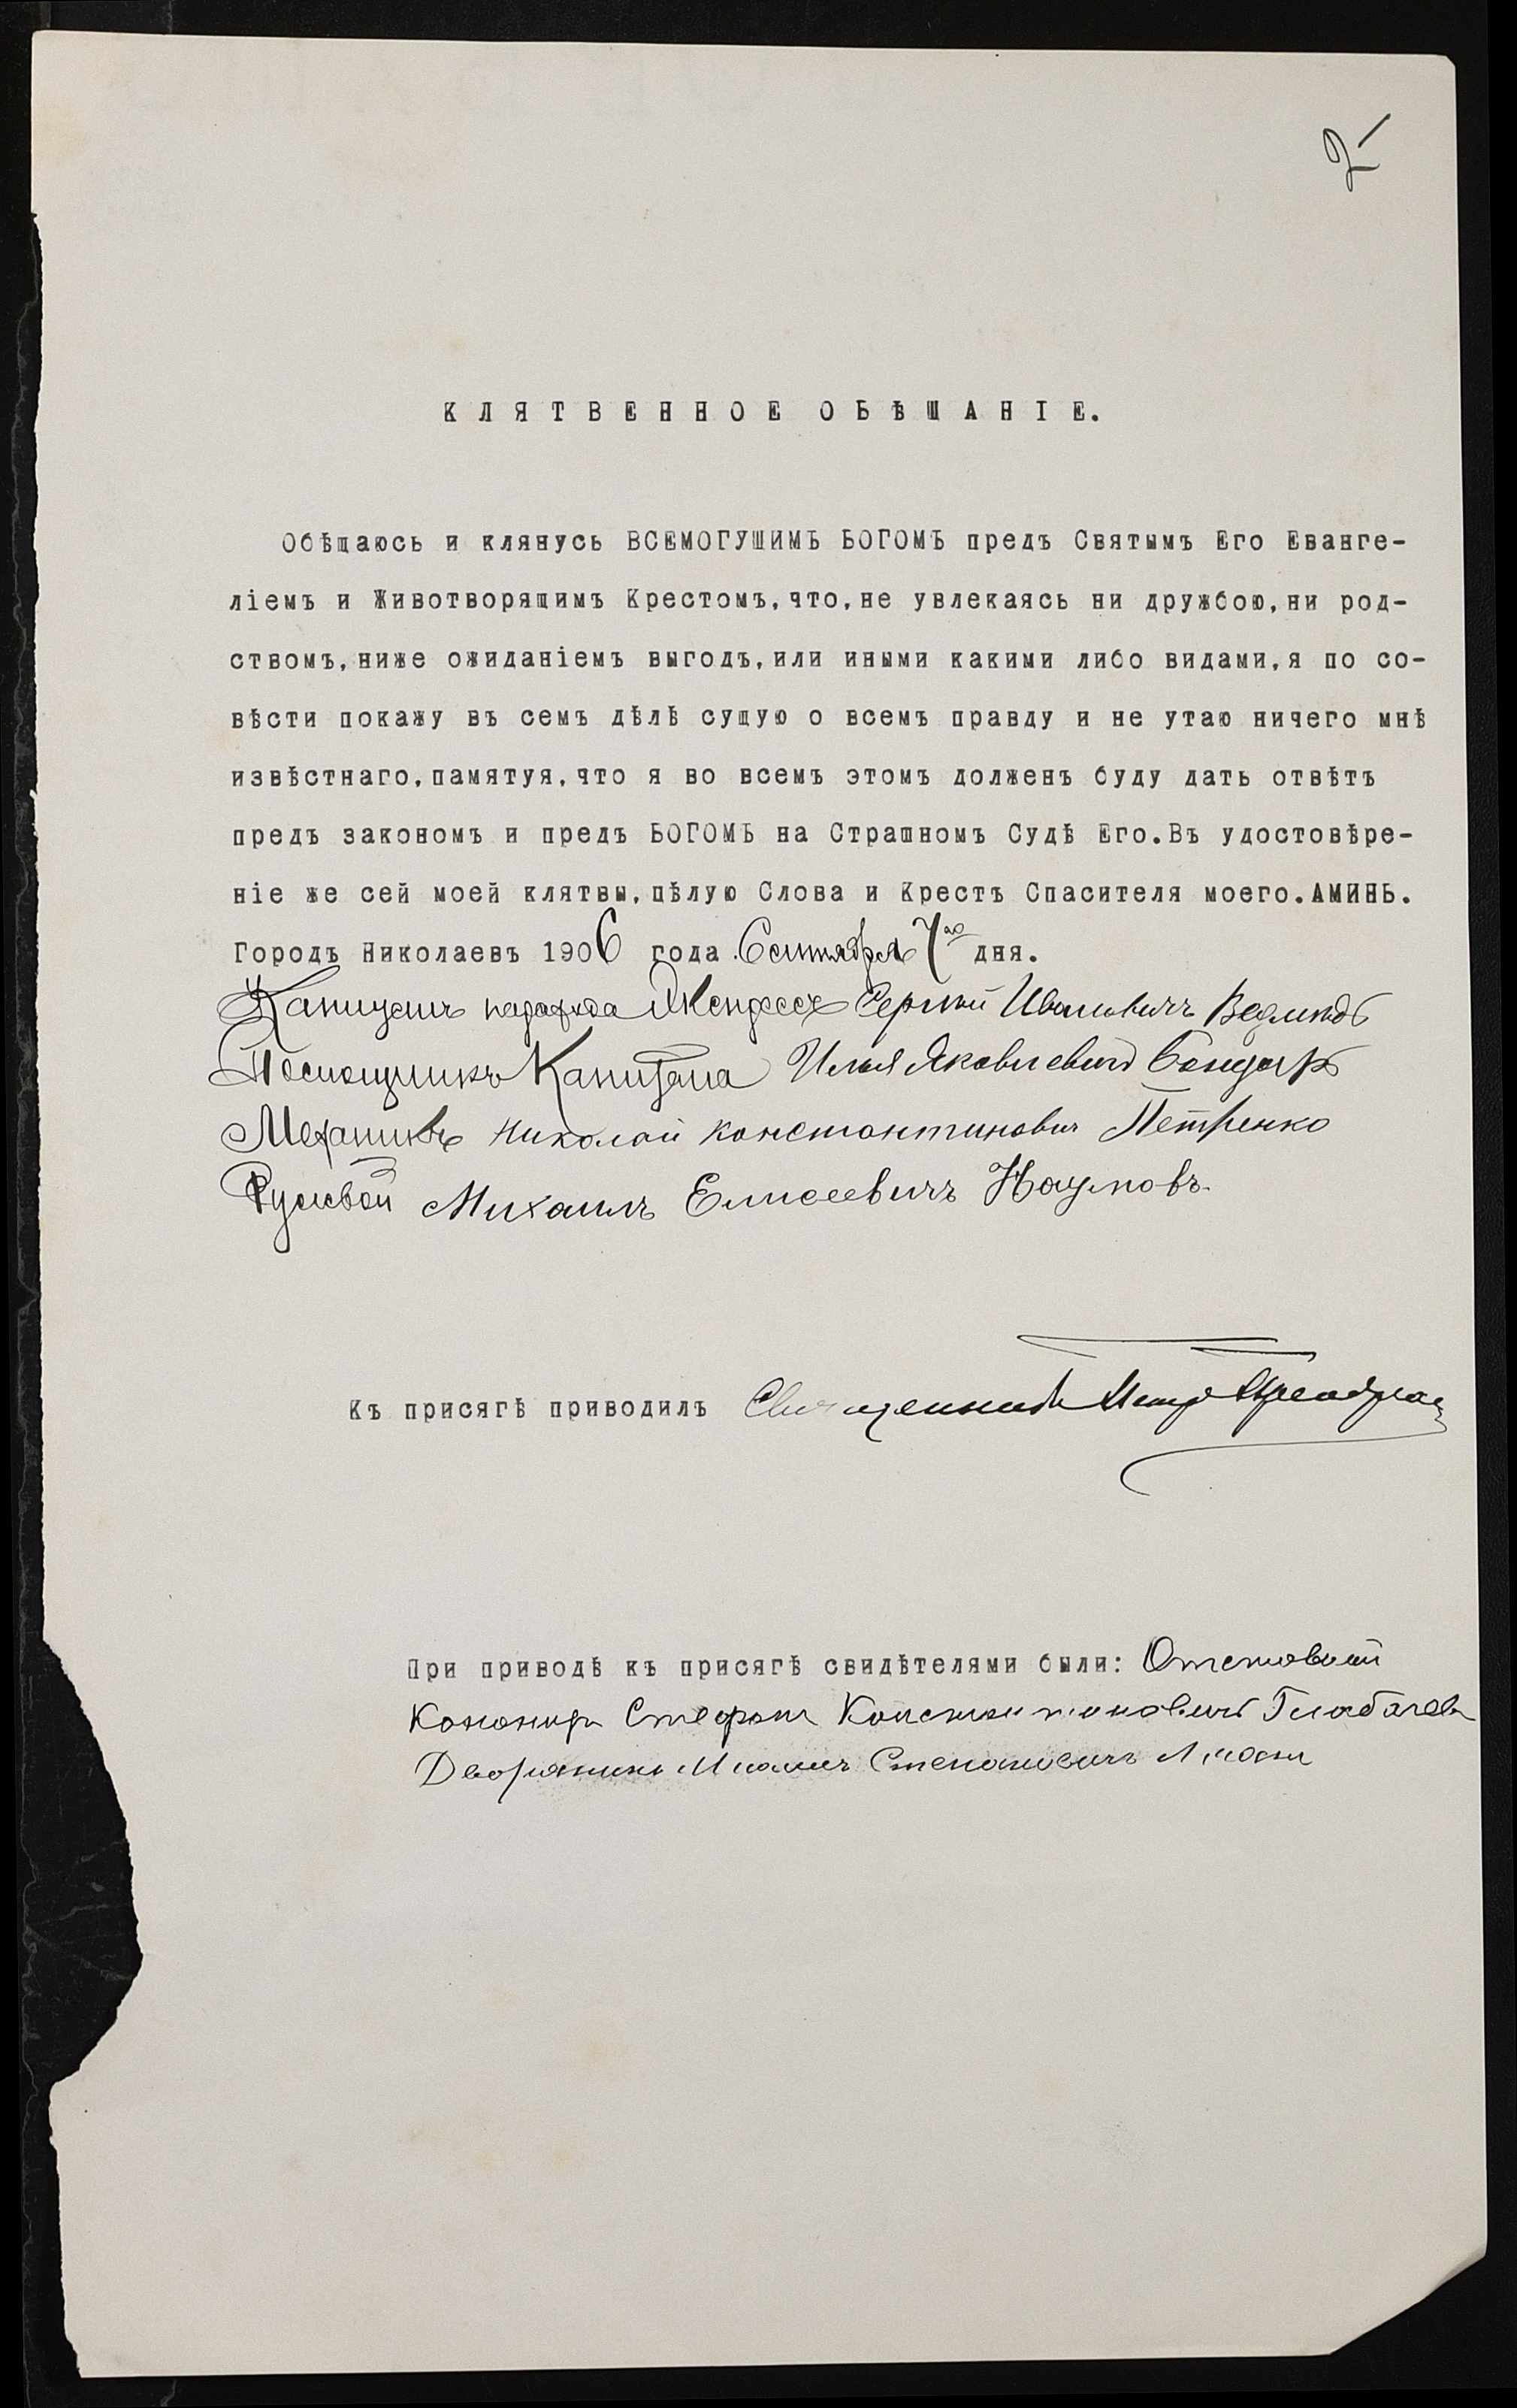 2
КЛЯТВЕННОЕ ОБѢШАНІЕ.
Обѣщаюсь и клянусь ВСЕМОГУШИМЪ БОГОМЪ предъ Святымъ Его Еванге-
ліемъ и Животворящимъ Крестомъ,что,не увлекаясь ни дружбою,ни род-
ствомъ,ниже ожиданіемъ выгодъ,или иными какими либо видами,я по со-
вѣсти покажу въ семъ дѣлѣ сущую о всемъ правду и не утаю ничего мнѣ
извѣстнаго,памятуя,что я во всемъ этомъ долженъ буду дать отвѣтъ
предъ закономъ и предъ БОГОМЪ на Страшномъ Судѣ Его.Въ удостовѣре-
ніе же сей моей клятвы,цѣлую Слова и Крестъ Спасителя моего.АМИНЬ.
Городъ Николаевъ 1906 года Сентября 7го дня.
Капитанъ парохода Сергѣй Ивановичъ
Помощникъ Капитана Илья Яковлевичъ Бондарь
Механикъ Николай Константиновичъ Петренко
Рулевой Михаилъ Елисеевичъ Наумовъ.
Къ присягѣ приводилъ Священникъ Петръ
При приводѣ къ присягѣ свидѣтелями были: Отставной
Канониръ Стефанъ Константиновичъ
Дворянинъ Степановичъ